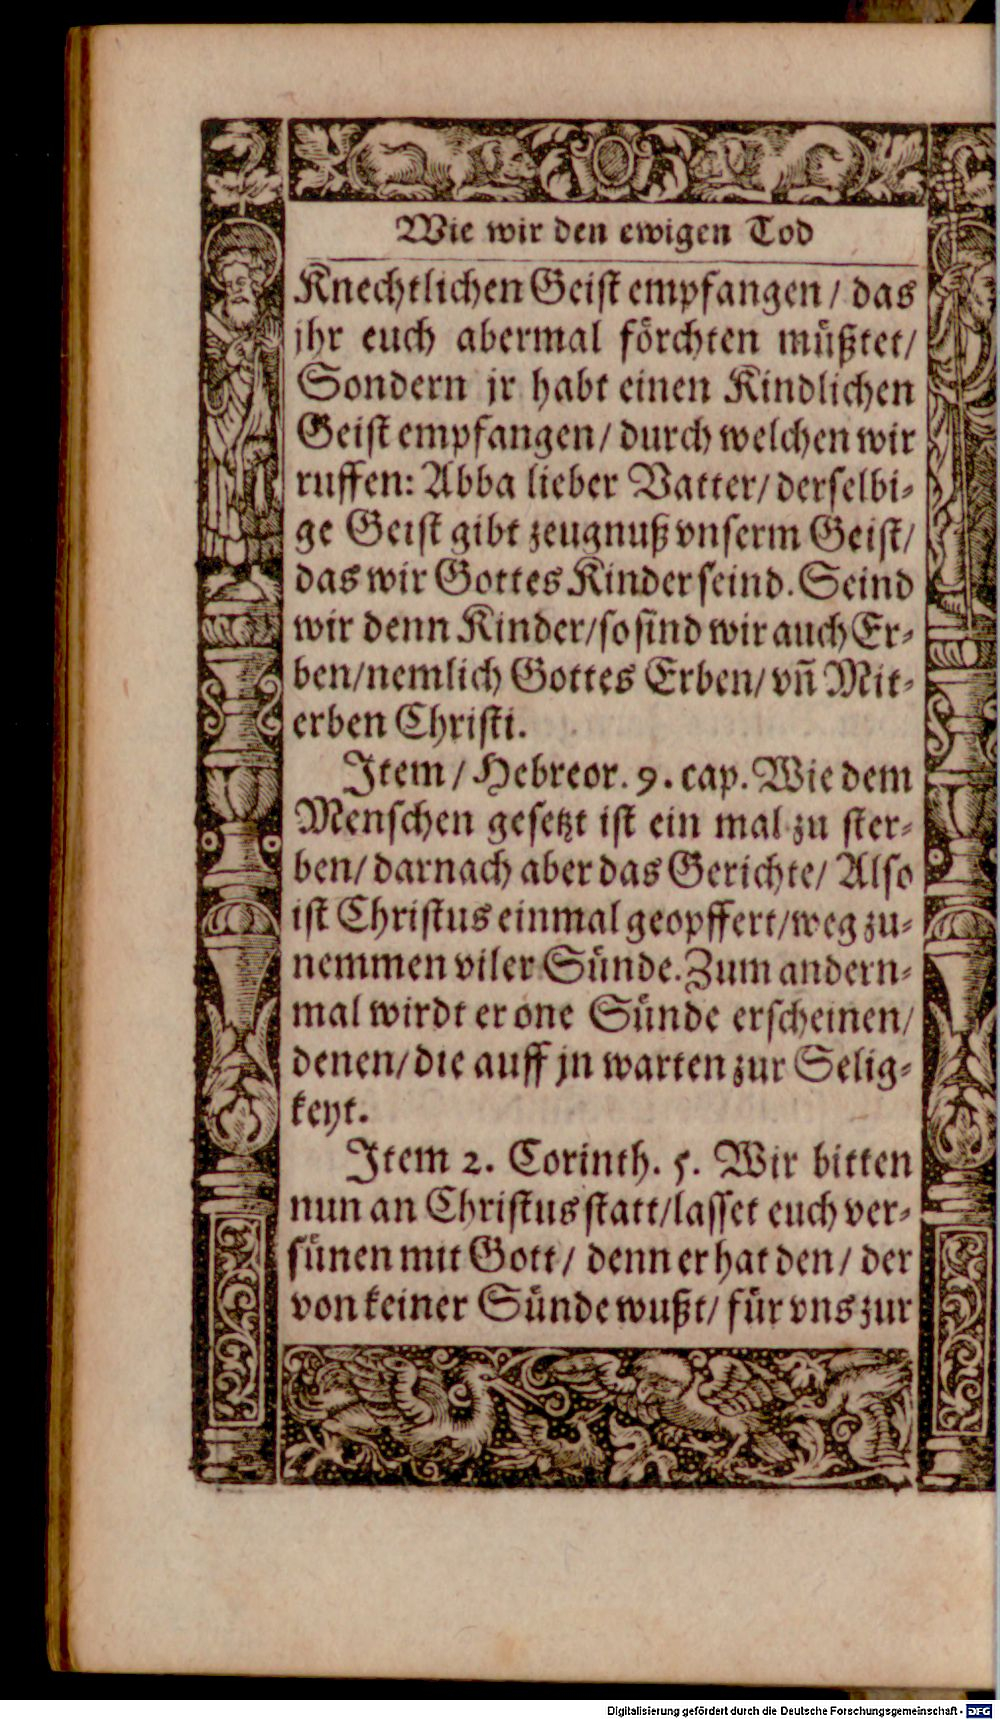 Wie wir den ewigen Tod
Knechtlichen Geist empfangen / das
jhr euch abermal förchten müßtet/
Sondern jr habt einen Kindlichen
Geist empfangen/ durch welchen wir
ruffen: Abba lieber Vatter/ derselbi-
ge Geist gibt zeugnuß vnserm Geist/
das wir Gottes Kinder seind. Seind
wir denn Kinder/so sind wir auch Er-
ben/nemlich Gottes Erben/ vñ Mit-
erben Christi.
Item / Hebreor. 9. cap. Wie dem
Menschen gesetzt ist ein mal zu ster-
ben/ darnach aber das Gerichte/ Also
ist Christus einmal geopffert/weg zu-
nemmen viler Sünde. Zum andern-
mal wirdt er one Sünde erscheinen/
denen/ die auff jn warten zur Selig-
keyt.
Item 2. Corinth. 5. Wir bitten
nun an Christus statt/lasset euch ver-
sünen mit Gott/ denn er hat den/ der
von keiner Sünde wußt/ für vns zur
Digitalisierung gefördert durch die Deutsche Forschungsgemeinschaft - DFG